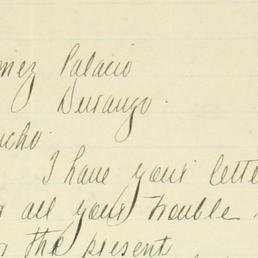 mez Palacio
Durango.
ucho.
I have your lette
r all your trouble.
r the present